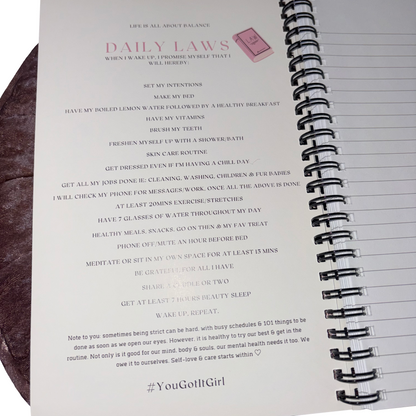 LIFE IS ALL ABOUT BALANCE
DAILY LAWS
WHEN I WAKE UP, I PROMISE MYSELF THAT I
WILL HEREBY:
SET MY INTENTIONS
MAKE MY BED
HAVE MY BOILED LEMON WATER FOLLOWED BY A HEALTHY BREAKFAST
HAVE MY VITAMINS
BRUSH MY TEETH
FRESHEN MYSELF UP WITH A SHOWER/BATH
SKIN CARE ROUTINE
GET DRESSED EVEN IF I'M HAVING A CHILL DAY
GET ALL MY JOBS DONE IE: CLEANING, WASHING, CHILDREN & FUR BABIES
I WILL CHECK MY PHONE FOR MESSAGES/WORK, ONCE ALL THE ABOVE IS DONE
AT LEAST 20MINS EXERCISE/STRETCHES
HAVE 7 GLASSES OF WATER THROUGHOUT MY DAY
HEALTHY MEALS, SNACKS, GO ON THEN & MY FAV TREAT
PHONE OFF/MUTE AN HOUR BEFORE BED
MEDITATE OR SIT IN MY OWN SPACE FOR AT LEAST 15 MINS
BE GRATEFUL FOR ALL I HAVE
SHARE A OR TWO
GET AT LEAST 7 HOURS BEAUTY SLEEP
WAKE UP, REPEAT.
Note to you: sometimes being strict can be hard, with busy schedules & 101 things to be
done as soon as we open our eyes. However, it is healthy to try our best & get in the
routine. Not only is it good for our mind, body & souls, our mental health needs it too. We
owe it to ourselves. Self-love & care starts within ♡
#YouGotItGirl